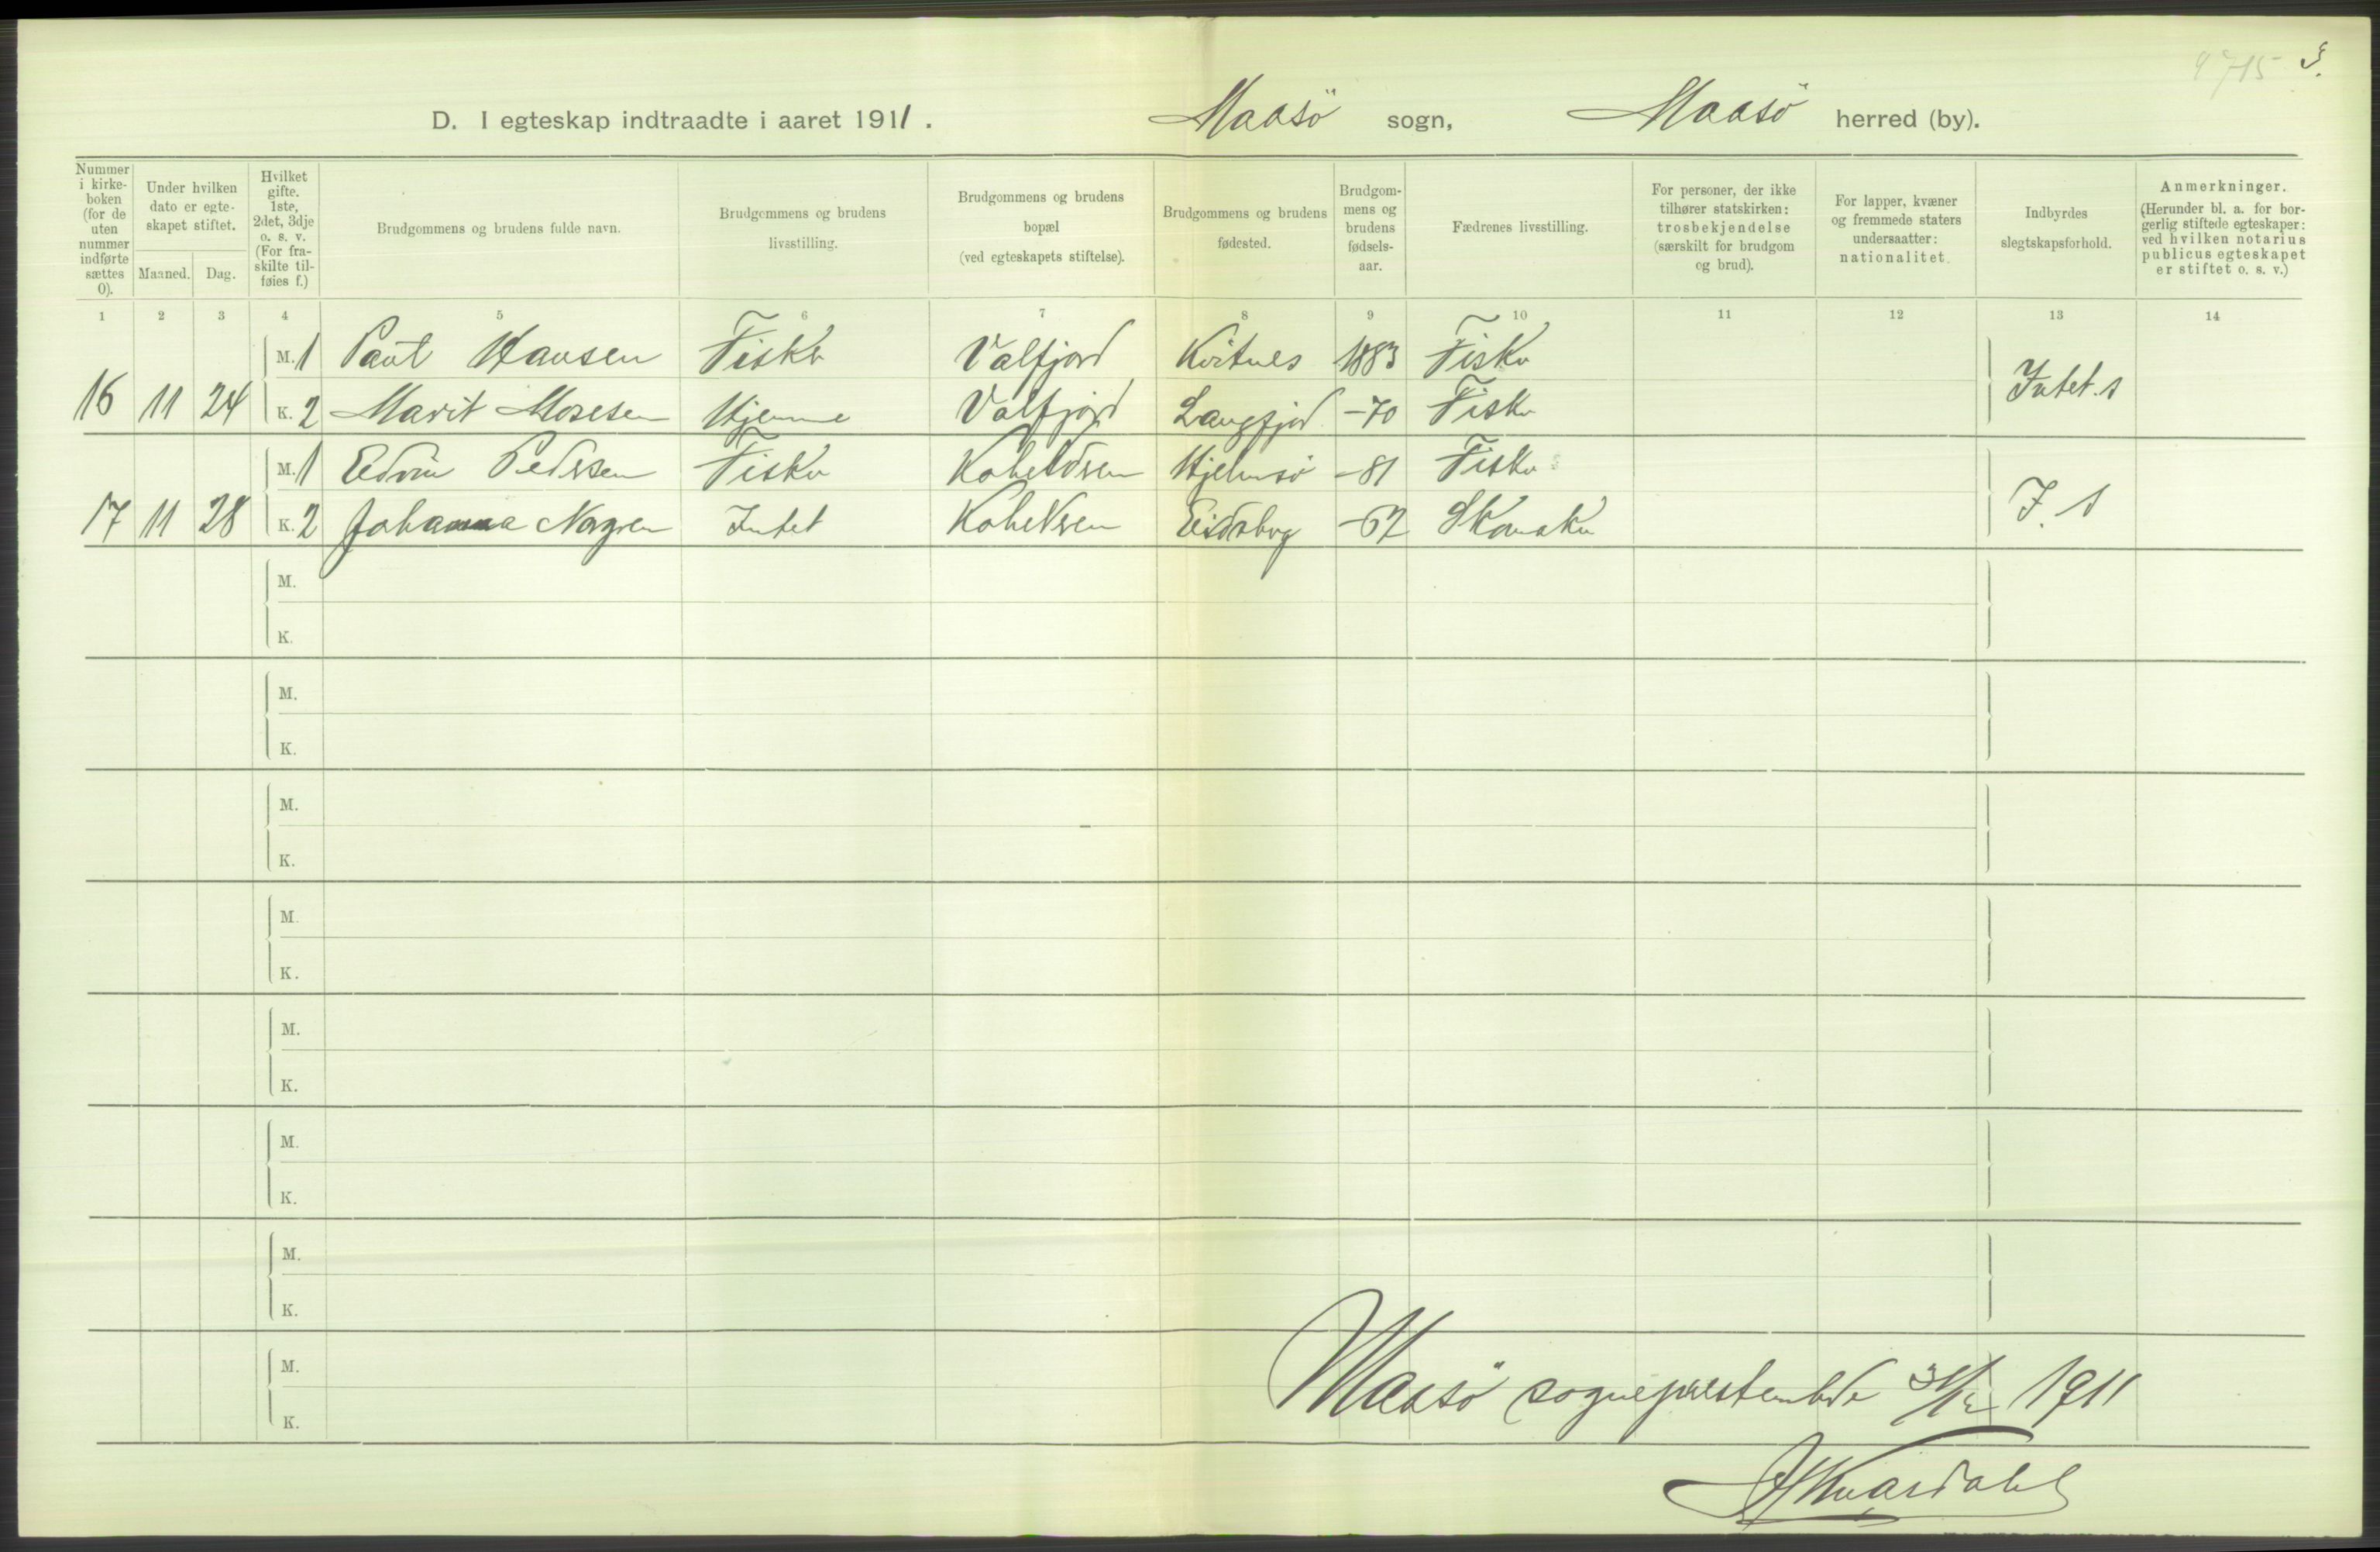 4715 3.
D. I egteskap indtraadte i aaret 1911. Maasö sogn, Maasö herred (by).
Nummer i kirke-boken (for de uten nummer indførte sættes 0).
Under hvilken dato er egte-skapet stiftet.
Maaned. Dag.
Hvilket gifte. 1ste, 2det, 3dje o. s. v. (For fra-skilte til-føies f.)
Brudgommens og brudens fulde navn.
Brudgommens og brudens livsstilling.
Brudgommens og brudens bopæl (ved egteskapets stiftelse).
Brudgommens og brudens fødested.
Brudgom-mens og brudens fødsels-aar.
Fædrenes livsstilling.
For personer, der ikke tilhører statskirken: trosbekjendelse (særskilt for brudgom og brud).
For lapper, kvæner og fremmede staters undersaatter: nationalitet.
Indbyrdes slegtskapsforhold.
Anmerkninger. (Herunder bl. a. for bor-gerlig stiftede egteskaper: ved hvilken notarius publicus egteskapet er stiftet o. s. v.)
1 2 3 4 5 6 7 8 9 10 11 12 13 14
M. 1 Paul Hansen Fisker Valfjord Kvitnes 1883 Fisker
16 11 24 K. 2 Marit Mosesen Hjemme Valfjord Langfjord -70 Fisker Intet. 1
M. 1 Edvin Pedersen Fisker Hjelmsö -81 Fisker
17 11 28 K. 2 Johanna Intet -62 I. 1
M.
K.
M.
K.
M.
K.
M.
K.
M.
K.
M.
K.
M.
K.
M.
K.
Maasö sogneprestembede 31/12 1911